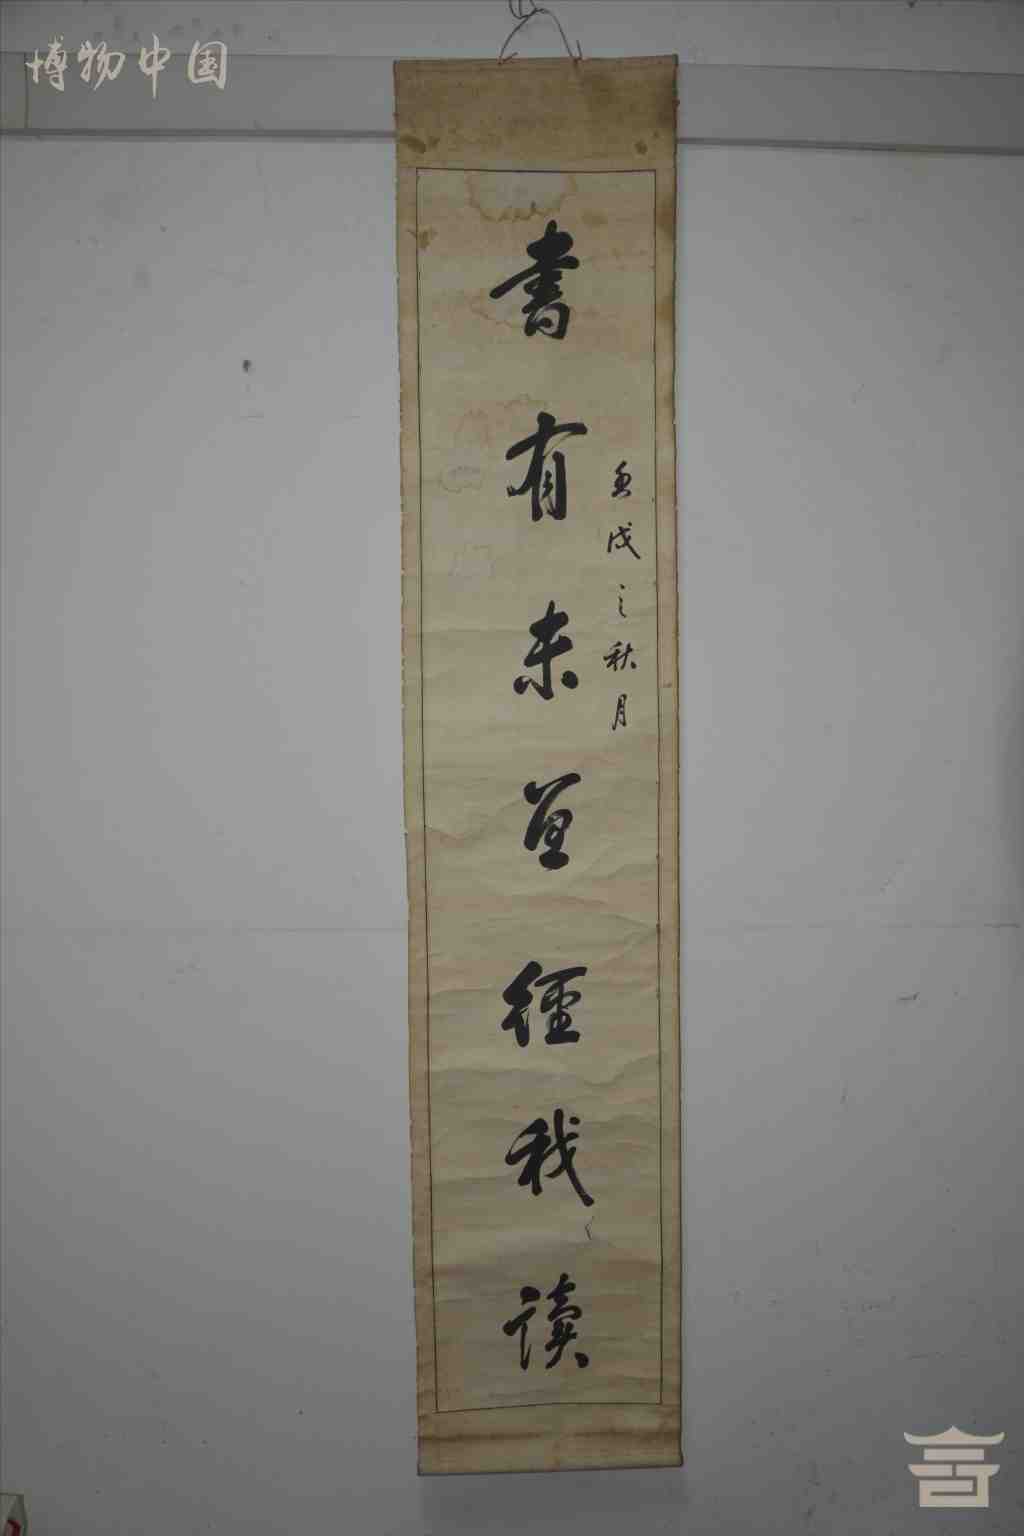 博物中国
戌之秋月
書有未曾經我讀